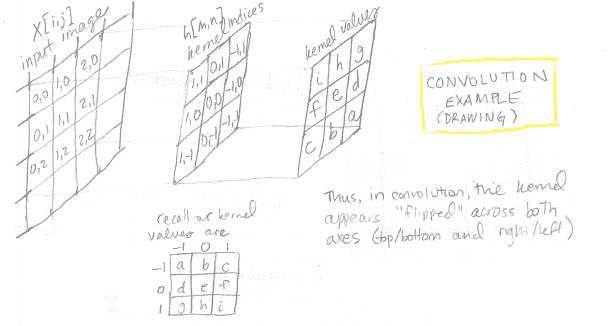 X[i,j]
input image
0,0 1,0 2,0
0,1 1,1 2,1
0,2 1,2 2,2
h[m,n]
kernel indices
1,1 0,1 -1,1
1,0 0,0 -1,0
1,-1 0,-1 -1,-1
kernel values
i h g
f e d
c b a
CONVOLUTION
EXAMPLE
(DRAWING)
Thus, in convolution, the kernel
appears "flipped" across both
axes (top/bottom and right/left)
recall our kernel
values are
-1 0 1
-1 a b c
0 d e f
1 g h i